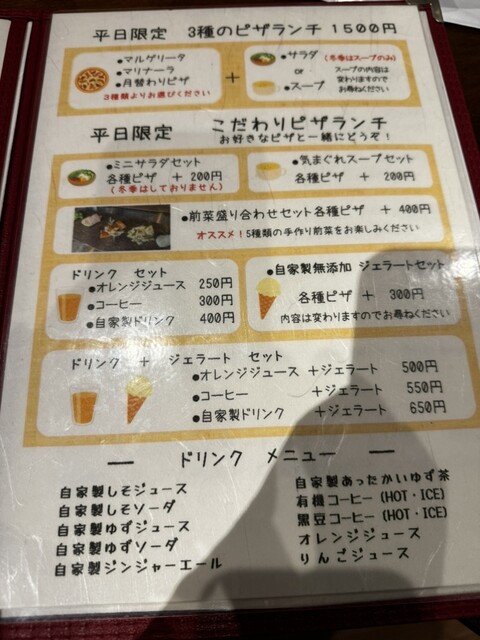 平日限定 3種のピザランチ 1500円
●マルゲリータ
●マリナーラ
●月替わりピザ
3種類よりお選びください
+
●サラダ (冬季はスープのみ)
or
●スープ
スープの内容は
変わりますので
お尋ねください
平日限定 こだわりピザランチ
お好きなピザと一緒にどうぞ!
●ミニサラダセット
各種ピザ +200円
(冬季はしておりません)
●気まぐれスープセット
各種ピザ + 200円
●前菜盛り合わせセット各種ピザ + 400円
オススメ!5種類の手作り前菜をお楽しみください
ドリンク セット
●オレンジジュース 250円
●コーヒー 300円
●自家製ドリンク 400円
●自家製無添加 ジェラートセット
各種ピザ + 300円
内容は変わりますのでお尋ねください
ドリンク + ジェラート セット
●オレンジジュース +ジェラート 500円
●コーヒー +ジェラート 550円
●自家製ドリンク +ジェラート 650円
ー ドリンク メニュー ー
自家製しそジュース
自家製しそソーダ
自家製ゆずジュース
自家製ゆずソーダ
自家製ジンジャーエール
自家製あったかいゆず茶
有機コーヒー(HOT・ICE)
黒豆コーヒー(HOT・ICE)
オレンジジュース
りんごジュース